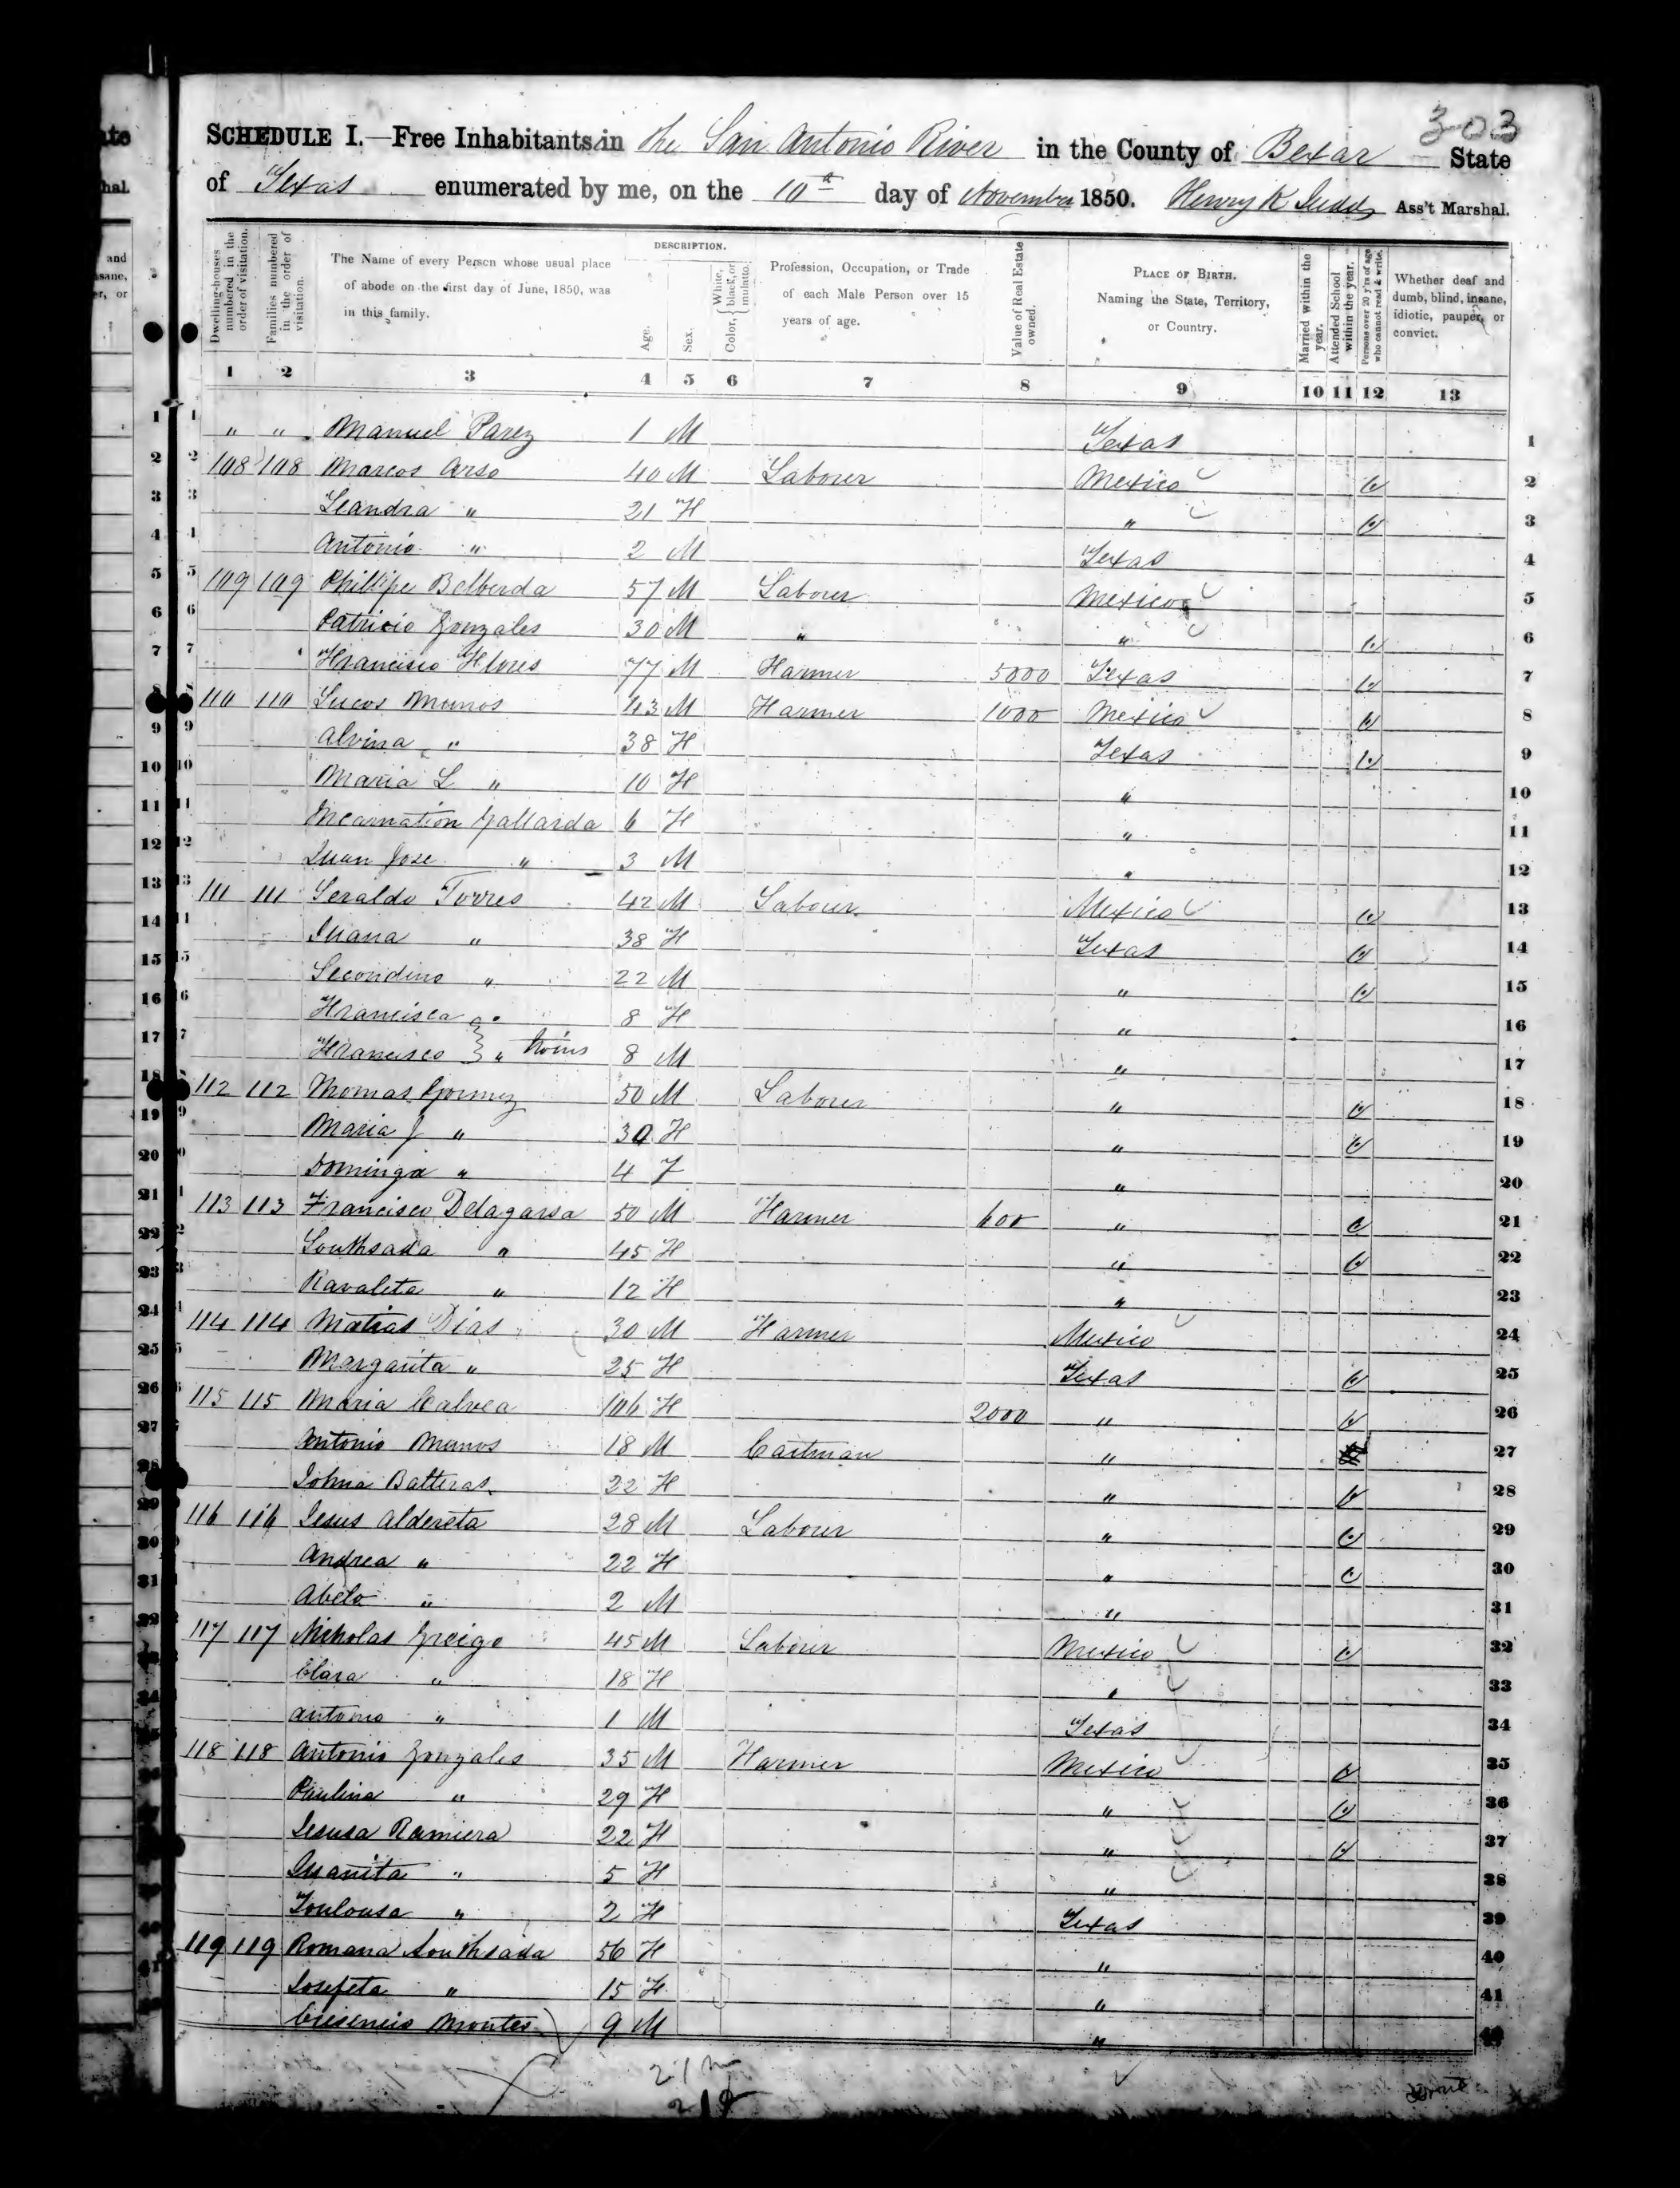 303
SCHEDULE I.—Free Inhabitants in the San Antonio River in the County of Bexar State
of Texas enumerated by me, on the 10th day of November 1850. Henry K Judd Ass't Marshal.
Dwelling-houses numbered in the order of visitation.
Families numbered in the order of visitation.
The Name of every Person whose usual place of abode on the first day of June, 1850, was in this family.
DESCRIPTION.
Age.
Sex.
Color, { White, black, or mulatto.
Profession, Occupation, or Trade of each Male Person over 15 years of age.
Value of Real Estate owned.
PLACE OF BIRTH. Naming the State, Territory, or Country.
Married within the year.
Attended School within the year.
Persons over 20 y'rs of age who cannot read & write.
Whether deaf and dumb, blind, insane, idiotic, pauper, or convict.
1 2 3 4 5 6 7 8 9 10 11 12 13
1 " " Manuel Parez 1 M Texas 1
2 108 108 Marcos Arso 40 M Labourer Mexico 2
3 Leandra " 21 F " 3
4 Antonio " 2 M Texas 4
5 109 109 Phillipe Balberda 57 M Labourer Mexico 5
6 Patricio Gonzales 30 M " " 6
7 Francisco Flores 77 M Farmer 5000 Texas 7
8 110 110 Lucas Munos 43 M Farmer 1000 Mexico 8
9 Alvina " 38 F Texas 9
10 Maria L " 10 F " 10
11 Incarnation Gallarda 6 F " 11
12 Juan Jose " 3 M " 12
13 111 111 Seraldo Torres 42 M Labourer Mexico 13
14 Juana " 38 F Texas 14
15 Secondino " 22 M " 15
16 Francisca " 8 F " 16
17 Francisco } " twins 8 M " 17
18 112 112 Thomas Gomez 50 M Labourer " 18
19 Maria J " 30 F " 19
20 Dominga " 4 F " 20
21 113 113 Francisco Delagarsa 50 M Farmer 600 " 21
22 Southsada " 45 F " 22
23 Ravaleta " 12 F " 23
24 114 114 Matias Dias 30 M Farmer Mexico 24
25 Margarita " 25 F Texas 25
26 115 115 Maria Calvea 106 F 2000 " 26
27 Antonio Munos 18 M Cartman " 27
28 Johna Batteras 22 F " 28
29 116 116 Jesus Aldereta 28 M Labourer " 29
30 Andrea " 22 F " 30
31 Abelo " 2 M " 31
32 117 117 Nicholas Greigo 45 M Labourer Mexico 32
33 Clara " 18 F " 33
34 Antonio " 1 M Texas 34
35 118 118 Antonio Gonzales 35 M Farmer Mexico 35
36 Paulina " 29 F " 36
37 Jesusa Ramiera 22 F " 37
38 Juanita " 5 F " 38
39 Toulousa " 2 F Texas 39
40 119 119 Romana Southsada 56 F " 40
41 Josefeta " 15 F " 41
Cresencio Montes 9 M " 42
21 m